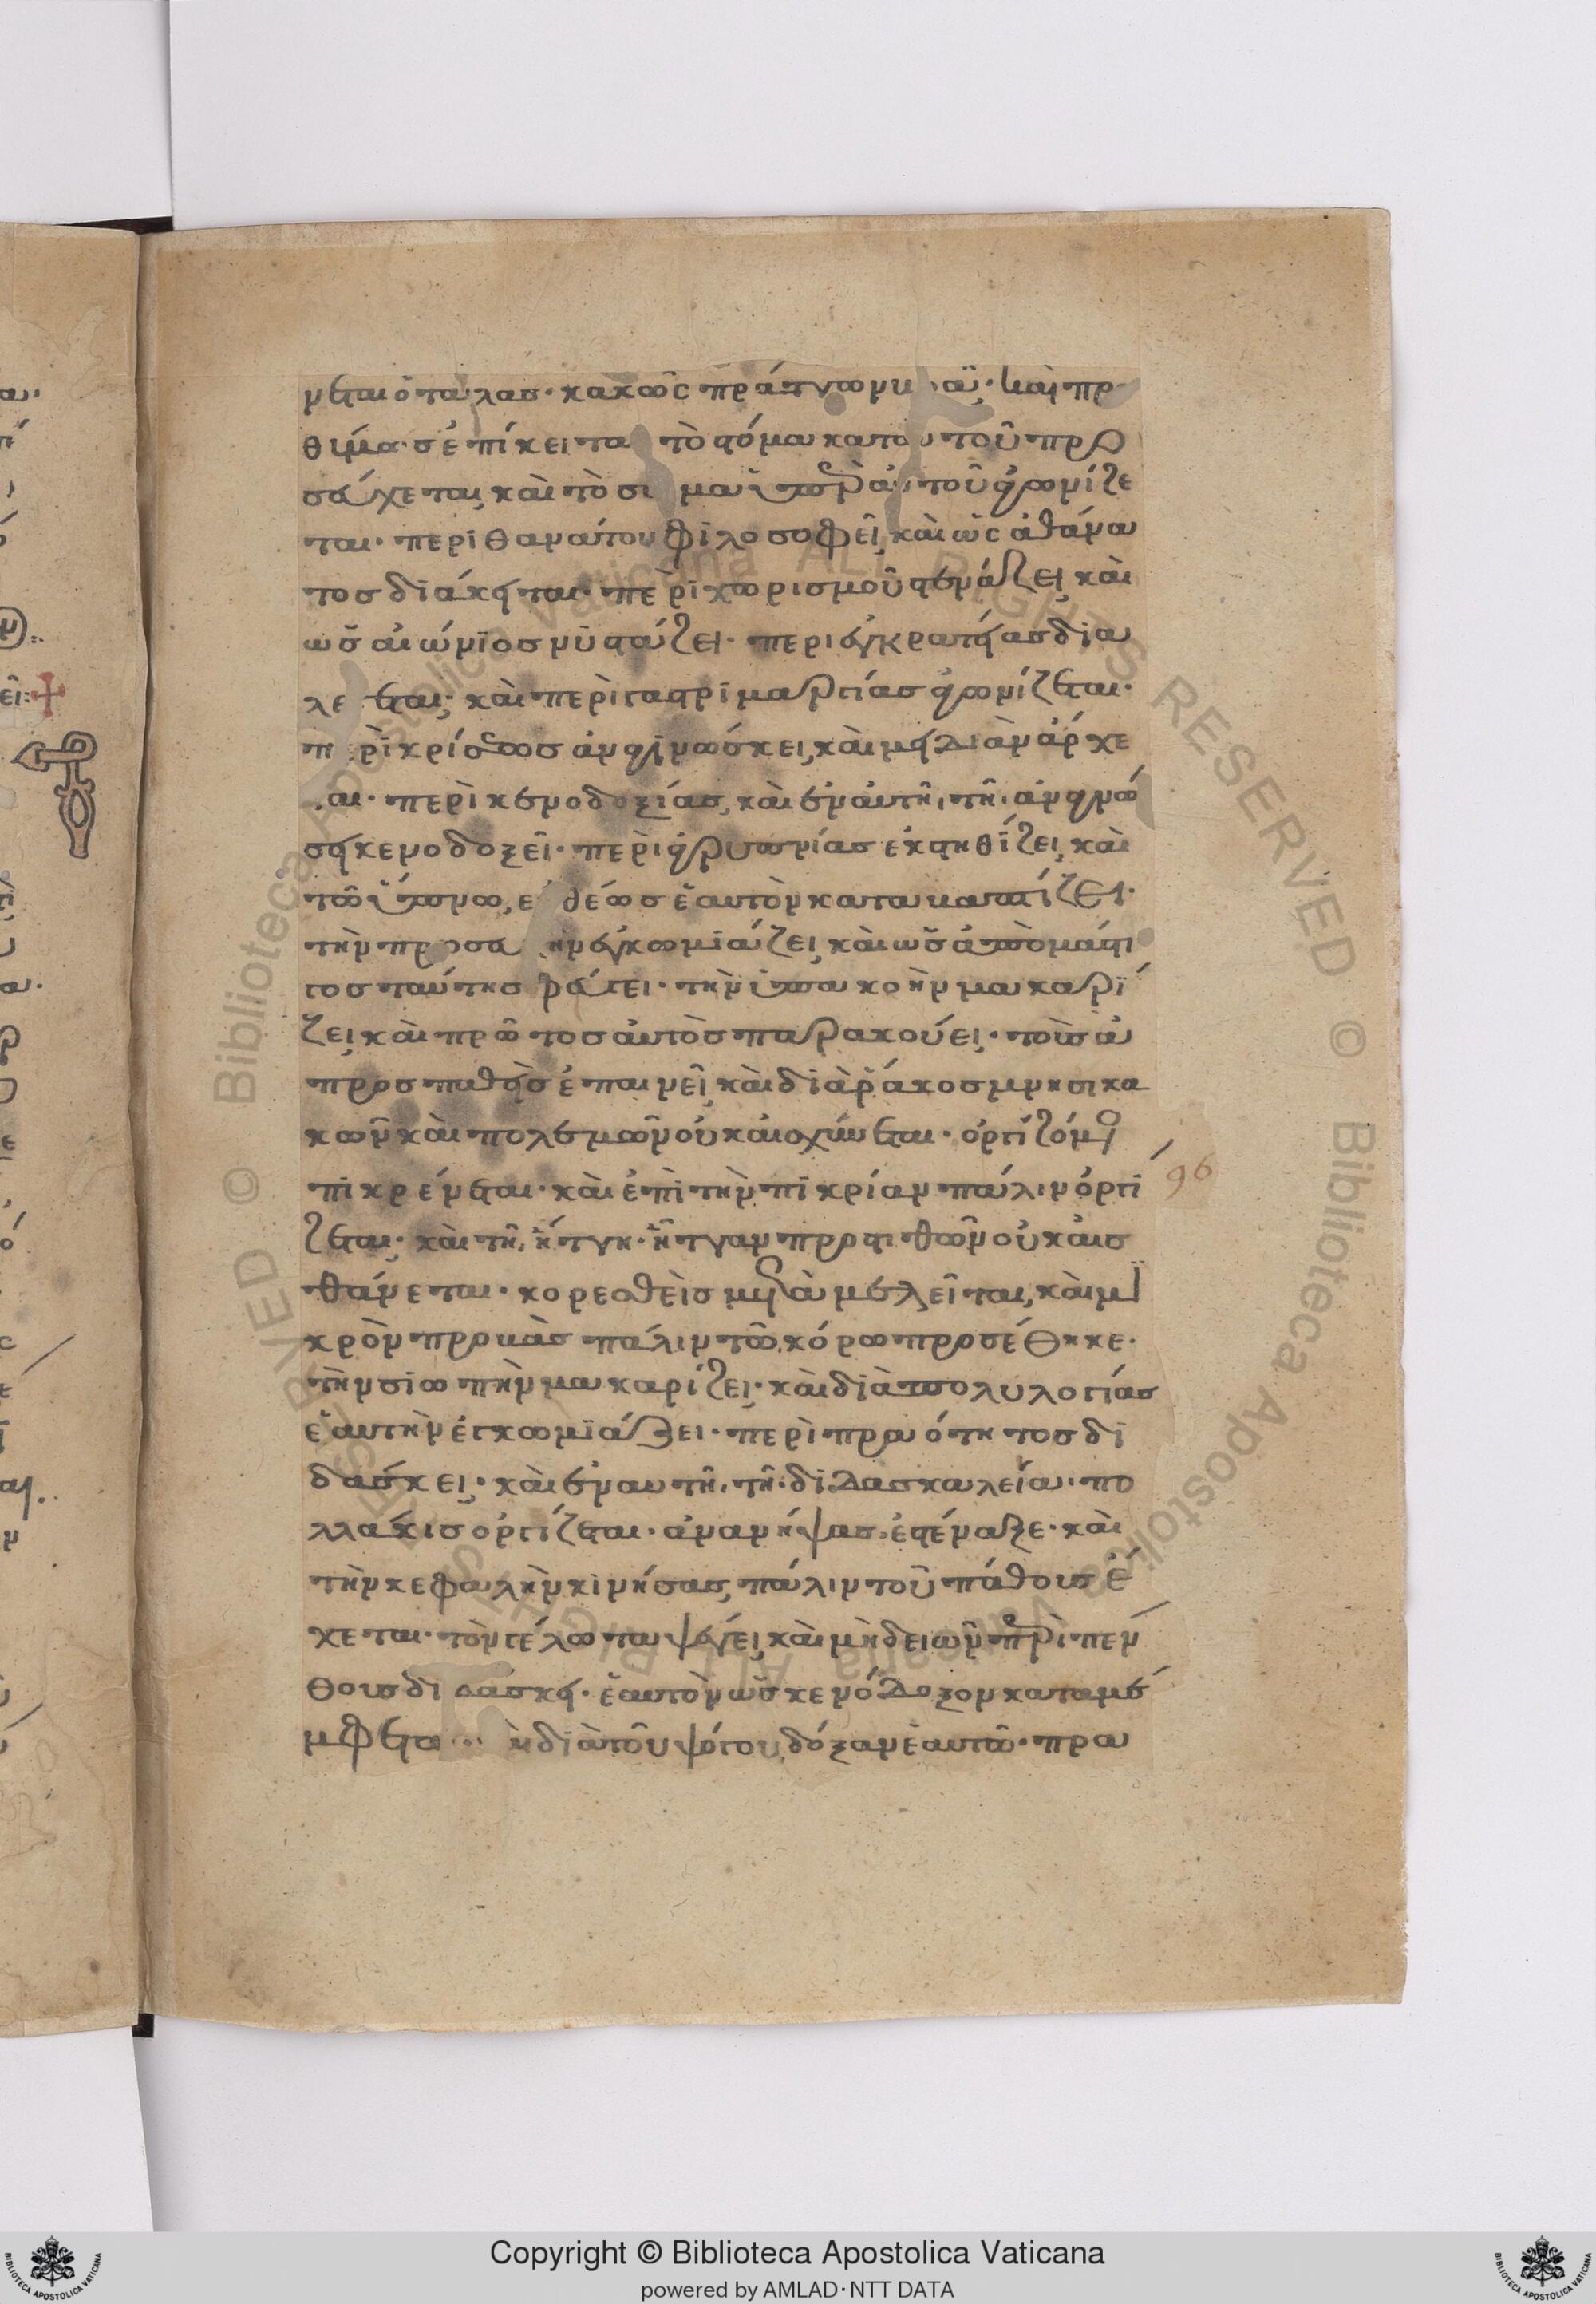 νεται ὁ τάλας· κακῶς πράττω βοᾷ· καὶ προ
θύμως ἐπίκειται τὸ στόμα κατ' αὐτοῦ προ
σεύχεται, καὶ τὸ σῶμα ὑπὲρ αὐτοῦ ἀγωνίζε
ται· περὶ θανάτου φιλοσοφεῖ, καὶ ὡς ἀθάνα
τος διάκειται· περὶ χωρισμοῦ στενάζει, καὶ
ὡς αἰώνιος νυστάζει· περὶ ἐγκρατείας δια
λέγεται, καὶ περὶ γαστριμαργίας ἀγωνίζεται·
περὶ κρίσεως ἀναγινώσκει, καὶ μειδιᾶν ἄρχε
ται· περὶ κενοδοξίας, καὶ ἐν αὐτῇ τῇ ἀναγνώ
σει κενοδοξεῖ· περὶ ἀγρυπνίας ἐκστηθίζει, καὶ
τῷ ὕπνῳ εὐθέως ἑαυτὸν καταβαπτίζει·
τὴν προσευχὴν ἐγκωμιάζει, καὶ ὡς ἀπὸ μάστι
γος ταύτης φεύγει· τὴν ὑπακοὴν μακαρί
ζει, καὶ πρῶτος αὐτὸς παρακούει· τοὺς ἀ
προσπαθεῖς ἐπαινεῖ, καὶ διὰ ῥάκος μνησικα
κῶν καὶ πολεμῶν οὐκ αἰσχύνεται· ὀργιζόμενος
πικραίνεται· καὶ ἐπὶ τὴν πικρίαν πάλιν ὀργί
ζεται· καὶ τῇ ἥττῃ ἧτταν προστιθῶν οὐκ αἰσ
θάνεται· κορεσθεὶς μεταμελεῖται, καὶ μι
κρὸν προβὰς πάλιν τῷ κόρῳ προσέθηκε·
τὴν σιωπὴν μακαρίζει· καὶ διὰ πολυλογίας
ἑαυτὴν ἐγκωμιάζει· περὶ πραότητος δι
δάσκει· καὶ ἐν αὐτῇ τῇ διδασκαλείᾳ πο
λλάκις ὀργίζεται· ἀνανήψας ἐστέναξε· καὶ
τὴν κεφαλὴν κινήσας πάλιν τοῦ πάθους ἔ
χεται· τὸν γέλωτα ψέγει, καὶ μηδειῶν περὶ πέν
θους διδάσκει· ἑαυτὸν ὡς κενόδοξον καταμέ
μφεται ... διὰ τοῦ ψόγου δόξαν ἑαυτῷ πρα
96
Copyright © Biblioteca Apostolica Vaticana
powered by AMLAD·NTT DATA